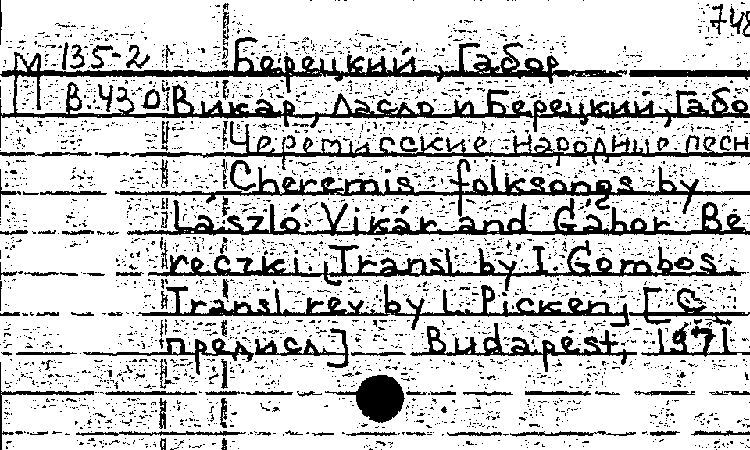 748
М 135-2 Берецкий, Габор
В.430 Викар, Ласло и Берецкий, Габо
Черемисские народные песн
Cheremis folksongs by
László Vikár and Gábor Be
reczki, Transl. by I. Gombos.
Transl. rev. by L. Picken, [С
предисл.] Budapest, 1971